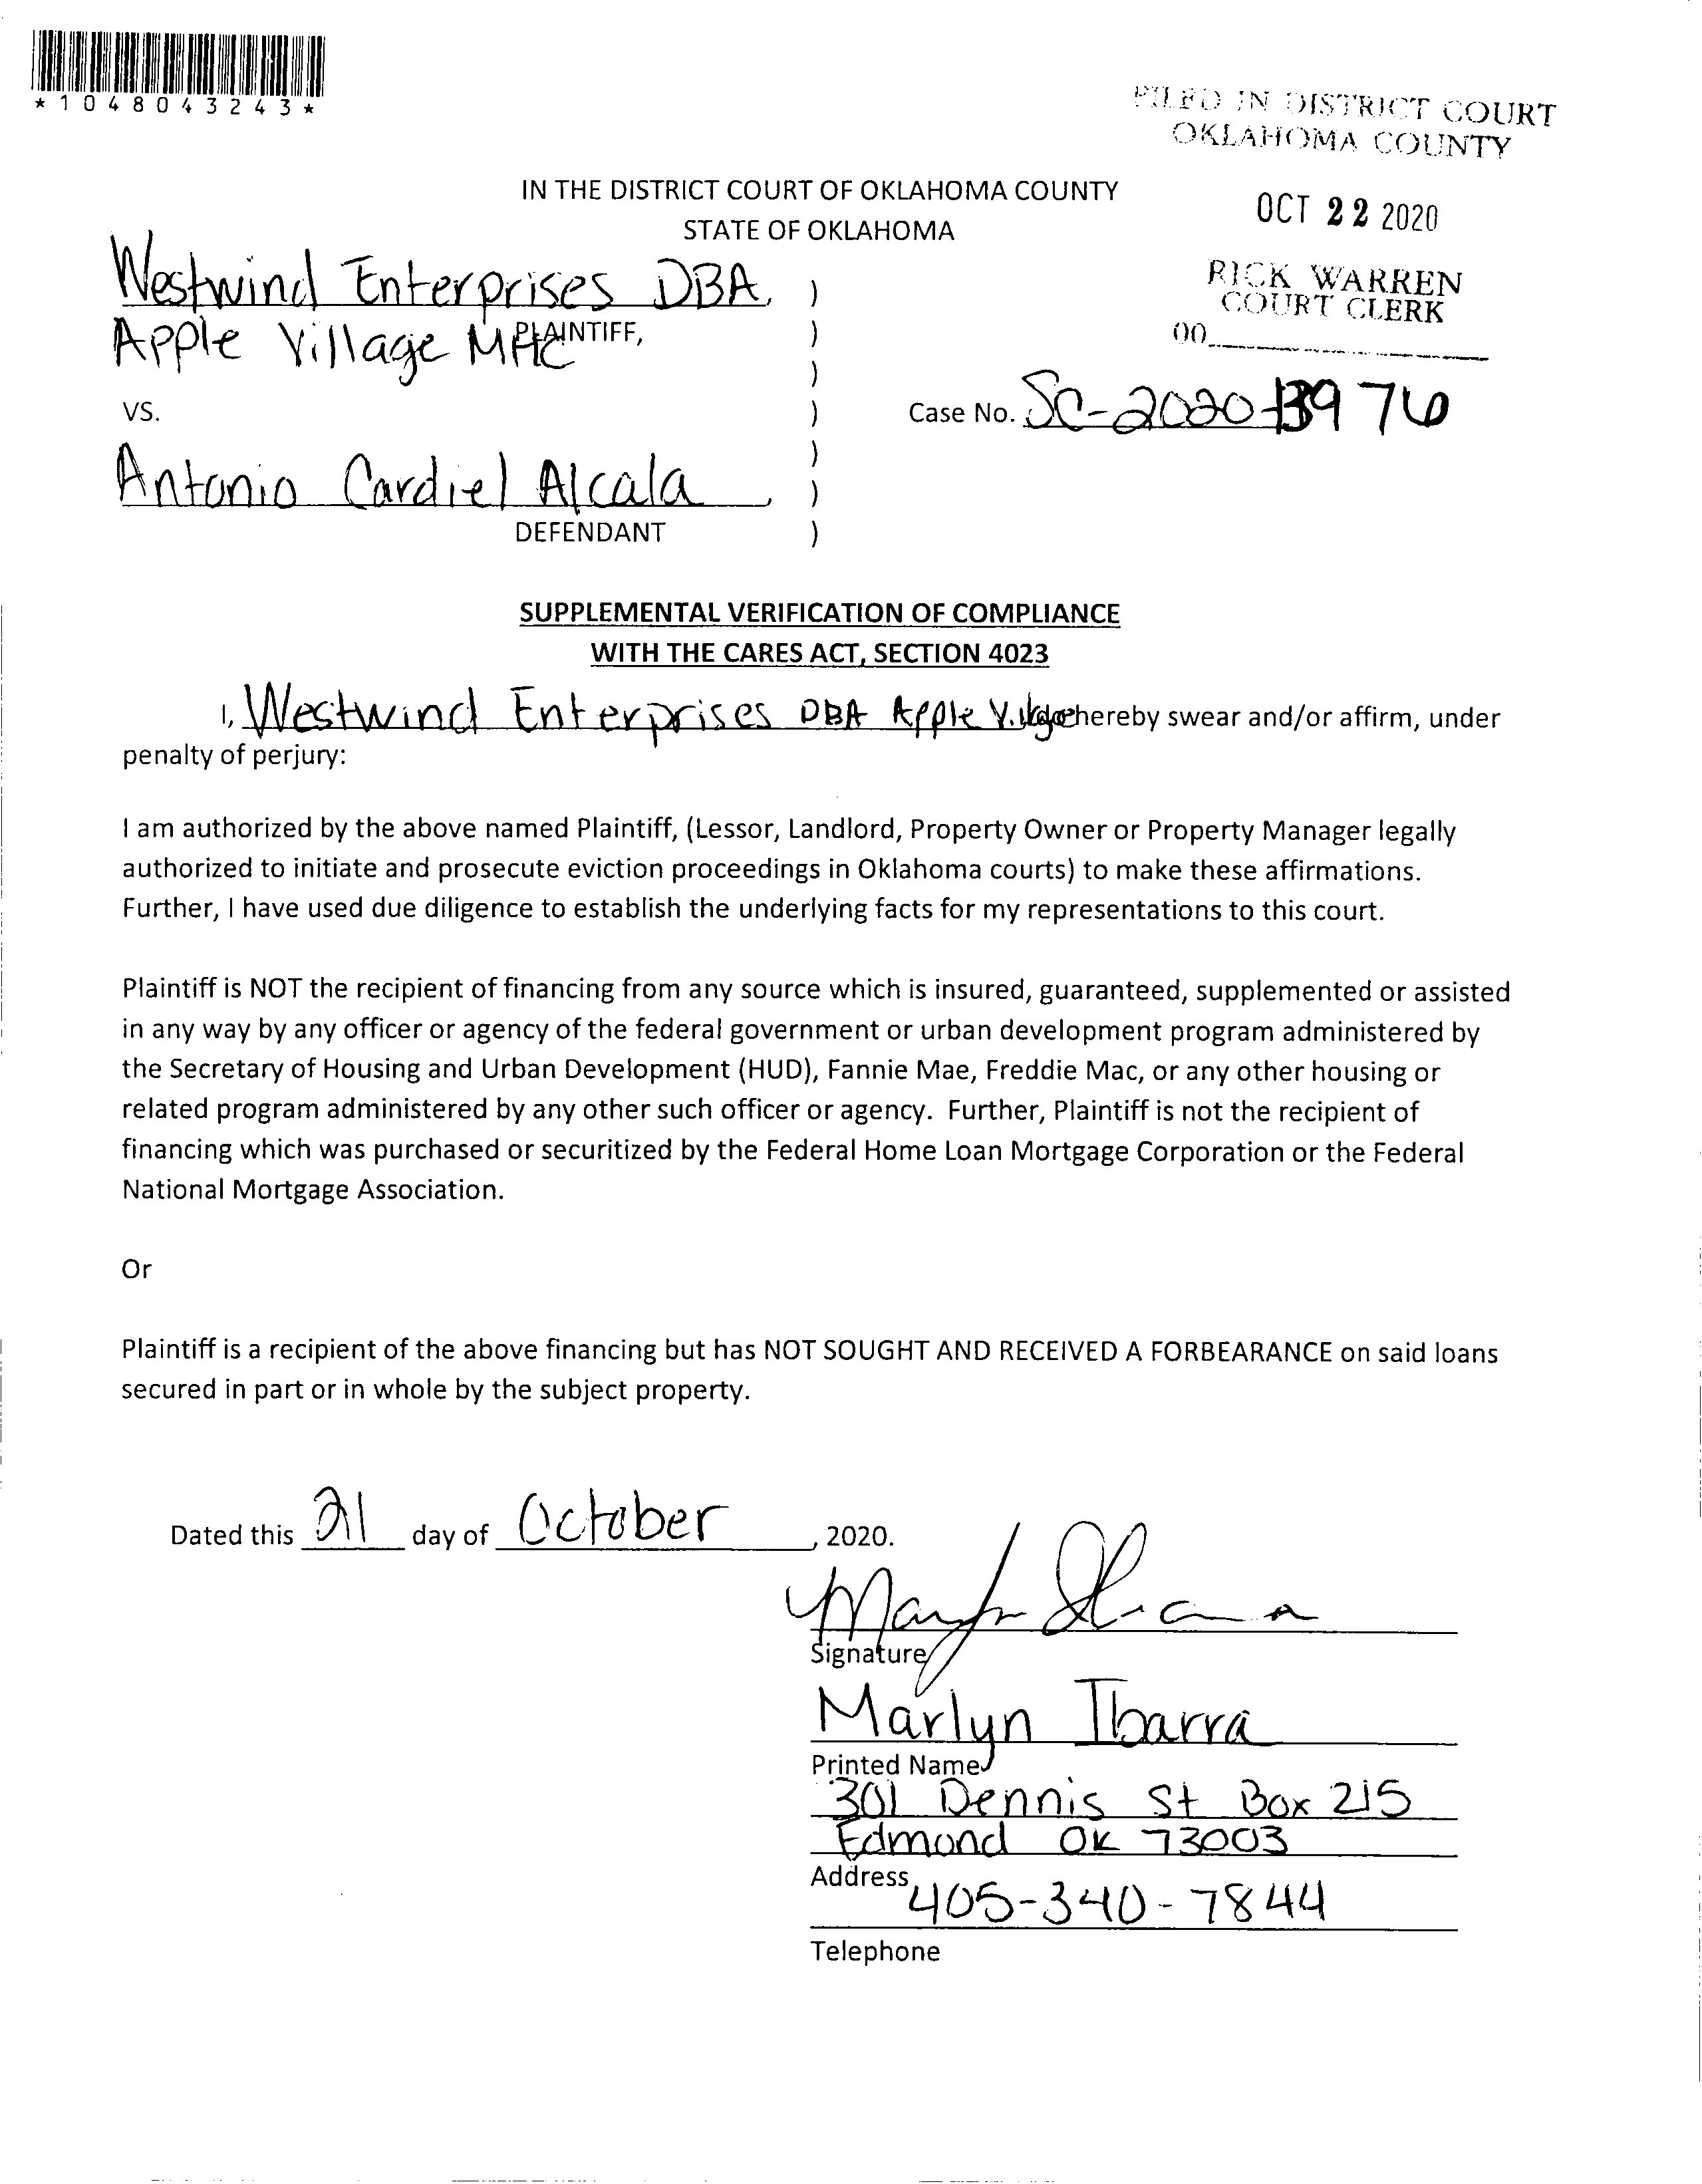 *1048043243*
FILED IN DISTRICT COURT
OKLAHOMA COUNTY
IN THE DISTRICT COURT OF OKLAHOMA COUNTY
STATE OF OKLAHOMA
OCT 22 2020
RICK WARREN
COURT CLERK
00
Westwind Enterprises DBA, )
Apple Village MHC PLAINTIFF, )
)
VS. ) Case No. SC-2020-13976
)
Antonio Cardiel Alcala , )
DEFENDANT )
SUPPLEMENTAL VERIFICATION OF COMPLIANCE
WITH THE CARES ACT, SECTION 4023
I, Westwind Enterprises DBA Apple Village hereby swear and/or affirm, under
penalty of perjury:
I am authorized by the above named Plaintiff, (Lessor, Landlord, Property Owner or Property Manager legally
authorized to initiate and prosecute eviction proceedings in Oklahoma courts) to make these affirmations.
Further, I have used due diligence to establish the underlying facts for my representations to this court.
Plaintiff is NOT the recipient of financing from any source which is insured, guaranteed, supplemented or assisted
in any way by any officer or agency of the federal government or urban development program administered by
the Secretary of Housing and Urban Development (HUD), Fannie Mae, Freddie Mac, or any other housing or
related program administered by any other such officer or agency. Further, Plaintiff is not the recipient of
financing which was purchased or securitized by the Federal Home Loan Mortgage Corporation or the Federal
National Mortgage Association.
Or
Plaintiff is a recipient of the above financing but has NOT SOUGHT AND RECEIVED A FORBEARANCE on said loans
secured in part or in whole by the subject property.
Dated this 21 day of October , 2020.
Signature
Marlyn Ibarra
Printed Name
301 Dennis St Box 215
Edmond OK 73003
Address
405-340-7844
Telephone